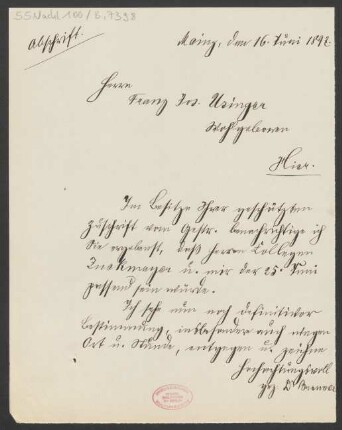 55 Nachl 100 / B, 7398
Abschrift.
Mainz, den 16. Juni 1897.
Herrn
Franz Jos. Usinger
Wohlgeboren
Hier.
Im Besitze Ihrer geschätzten
Zuschrift vom Gestr. benachrichtige ich
Sie ergebenst, daß Herrn Collegen
Zuckmayer u. mir der 25. Juni
passend sein würde.
Ich sehe nun noch definitiver
Bestimmung, insbesondere auch wegen
Ort u. Stunde, entgegen u. zeichne
Hochachtungsvoll
gez. Dr